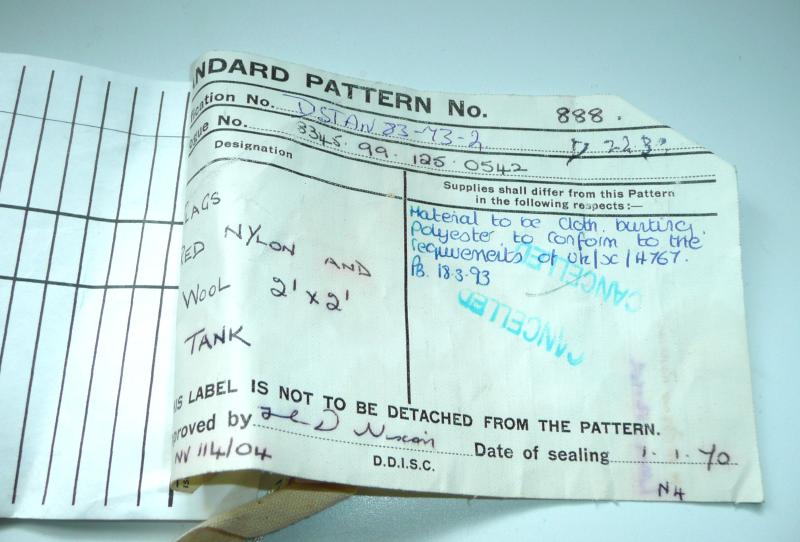 NDARD PATTERN No. 888.
ification No. DSTAN 83-73-2
ogue No. 8345.99.125.0542 223
Designation
Supplies shall differ from this Pattern
in the following respects:—
LAGS
RED NYLON AND
WOOL 2' x 2'
TANK
Material to be cloth bunting.
Polyester to conform to the
requirements of UK/SC/4767.
PB. 18.3.93
CANCELLED
CANCELLED
IS LABEL IS NOT TO BE DETACHED FROM THE PATTERN.
proved by D Nixon Date of sealing 1.1.70
NV 114/04
D.D.I.S.C.
N4